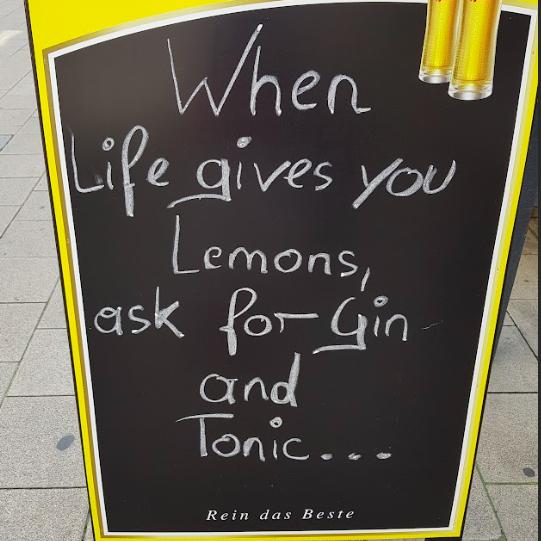 When
Life gives you
Lemons,
ask for Gin
and
Tonic...
Rein das Beste